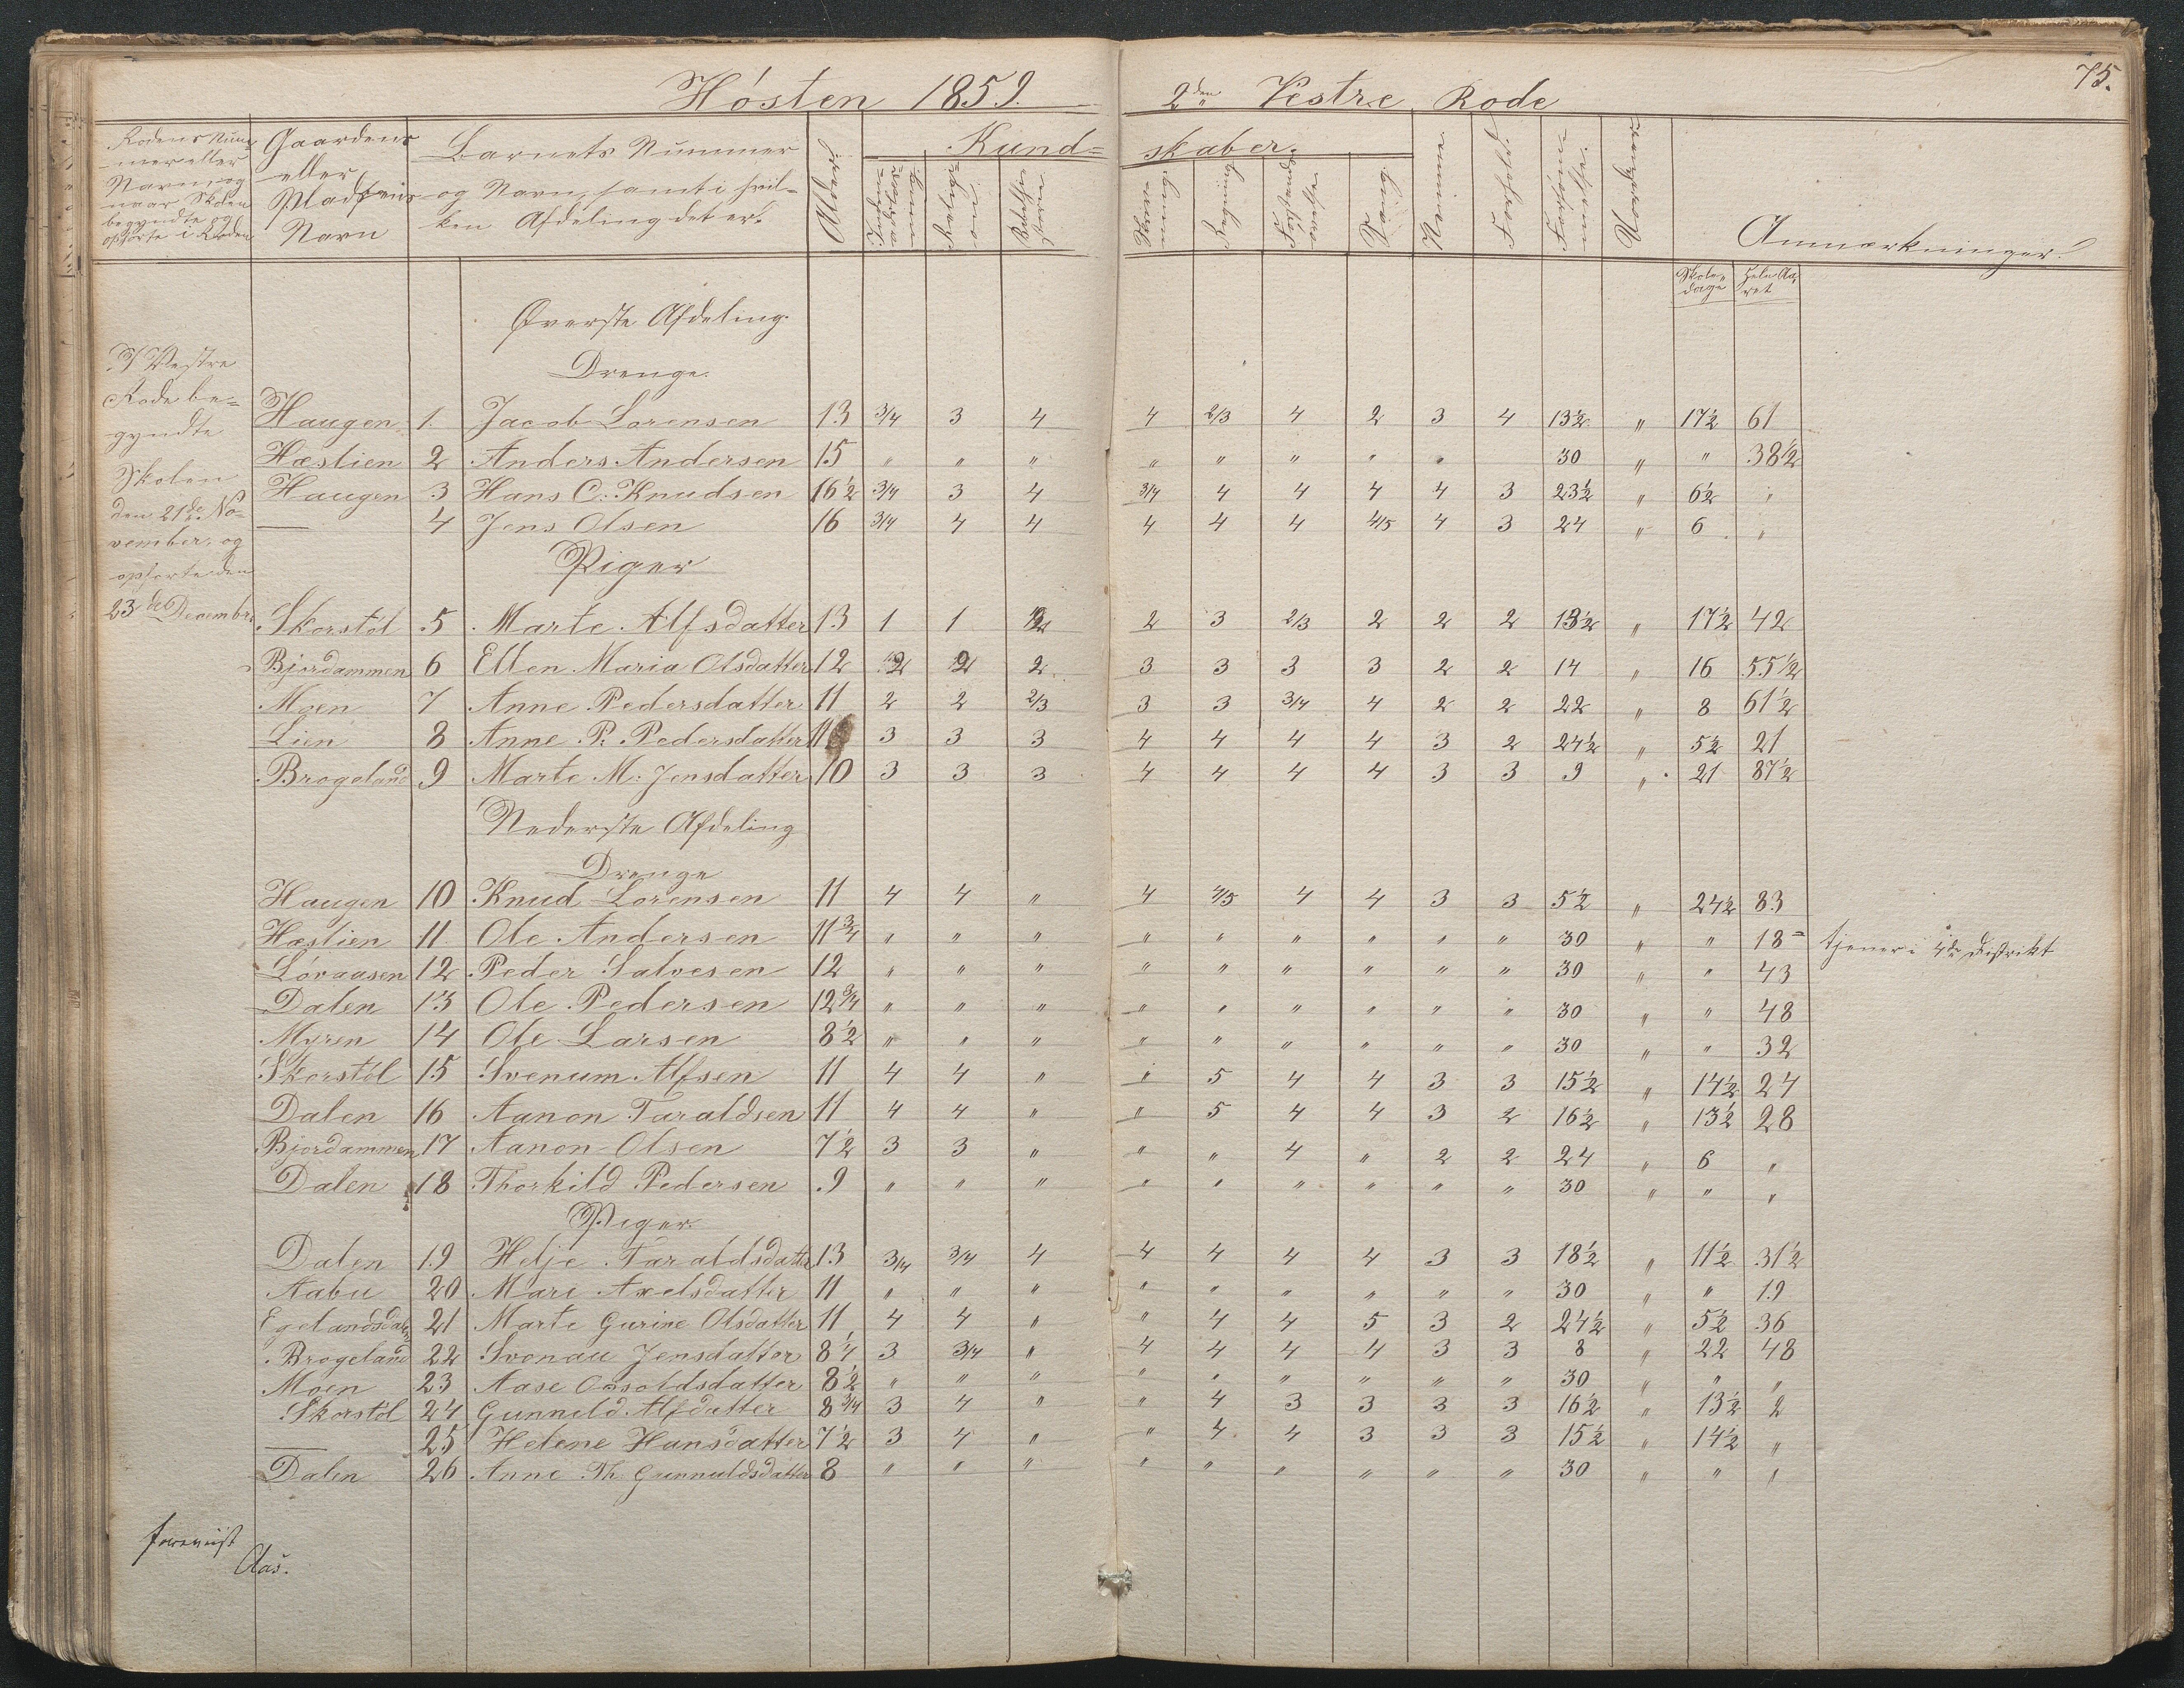 Høsten 1859.
2den Vestre Rode
75.
Rodens Num-
mer eller
Navn, og
naar Skolen
begyndte og
ophørte i Roden
Gaardens
eller
Pladsens
Navn
Barnets Nummer
og Navn, samt i hvil-
ken Afdeling det er.
Alder.
Kund-
skaber.
Religi-
on
Skriv-
ning
Regning
Sang.
Nemme
Forhold.
Forsøm-
melse.
Anmærkninger.
Skole-
dage
Hele Aa-
ret
Øverste Afdeling.
Drenge.
I Vestre
Rode be-
gyndte
Skolen
den 21de No-
vember. og
ophørte den
23de Decembr.
Haugen 1. Jacob Lorensen 13 3/4 3 4 4 2/3 4 2 3 4 13½ " 17½ 61
Hæstien 2 Anders Andersen 15 " " " " " " " " 30 " " 38½
Haugen 3 Hans C: Knudsen 16½ 3/4 3 4 3/4 4 4 4 4 3 23½ " 6½ "
— 4 Jens Olsen 16 3/4 4 4 4 4 4 4/5 4 3 24 " 6 "
Piger
Skorstøl 5 Marte Alfsdatter 13 1 1 2 2 3 2/3 2 2 2 13½ " 17½ 42
Bjordammen 6 Ellen Maria Olsdatter 12 2 2 2 3 3 3 3 2 2 14 " 16 55½
Moen 7 Anne Pedersdatter 11 2 2 2/3 3 3 3/4 4 2 2 22 " 8 61½
Lien 8 Anne P. Pedersdatter 11 3 3 3 4 4 4 4 3 2 24½ " 5½ 21
Brogeland 9 Marte M: Jensdatter 10 3 3 3 4 4 4 4 3 3 9 " 21 87½
Nederste Afdeling
Drenge
Haugen 10 Knud Lorensen 11 4 4 " 4 4/5 4 4 3 3 5½ " 24½ 83
Hæstien 11 Ole Andersen 11¾ " " " " " " " " " 30 " " 18 tjener i 4de Distrikt
Løvaasen 12 Peder Salvesen 12 " " " " " " " " " 30 " " 43
Dalen 13 Ole Pedersen 12¾ " " " " " " " " " 30 " " 48
Myren 14 Ole Larsen 8½ " " " " " " " " " 30 " " 32
Skorstøl 15 Svenum Alfsen 11 4 4 " " 5 4 4 3 3 15½ " 14½ 24
Dalen 16 Aanon Taraldsen 11 4 4 " " 5 4 4 3 2 16½ " 13½ 28
Bjordammen 17 Aanon Olsen 7½ 3 3 " " " 4 " 2 2 24 " 6 "
Dalen 18 Thorkild Pedersen 9 " " " " " " " " " 30 " " "
Piger.
Dalen 19 Helje Taraldsdatter 13 3/4 3/4 4 4 4 4 4 3 3 18½ " 11½ 31½
Aabu 20 Mari Axelsdatter 11 " " " " " " " " " 30 " " 19
Egelandsdalen 21 Marte Gurine Olsdatter 11 4 4 " " 4 4 5 3 2 24½ " 5½ 36
Brogeland 22 Svonau Jensdatter 8¼ 3 3/4 " 4 4 4 4 3 3 8 " 22 48
Moen 23 Aase Ossoldsdatter 8½ " " " " " " " " " 30 " " "
Skorstøl 24 Gunnild Alfdatter 8¾ 3 4 " " 4 3 3 3 3 16½ " 13½ 2
— 25 Helene Hansdatter 7½ 3 4 " " 4 4 3 3 3 15½ " 14½ "
Dalen 26 Anne Th. Gunnuldsdatter 8 " " " " " " " " " 30 " " "
foreviist
Aas.